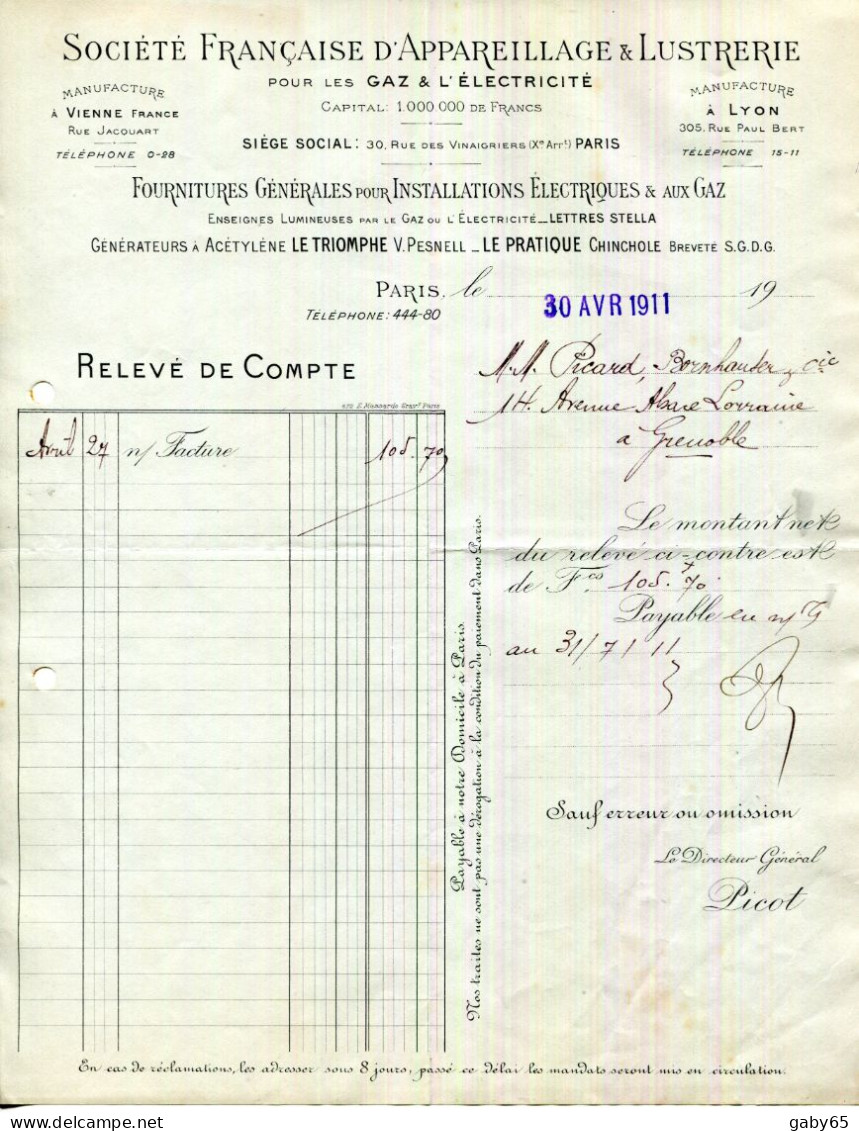 SOCIÉTÉ FRANÇAISE D'APPAREILLAGE & LUSTRERIE
POUR LES GAZ & L'ÉLECTRICITÉ
CAPITAL: 1.000.000 DE FRANCS
MANUFACTURE
À VIENNE FRANCE
RUE JACQUART
TÉLÉPHONE 0-28
MANUFACTURE
À LYON
305, RUE PAUL BERT
TÉLÉPHONE 15-11
SIÈGE SOCIAL: 30, RUE DES VINAIGRIERS (Xe Arrt) PARIS
FOURNITURES GÉNÉRALES POUR INSTALLATIONS ÉLECTRIQUES & AUX GAZ
ENSEIGNES LUMINEUSES PAR LE GAZ OU L'ÉLECTRICITÉ_LETTRES STELLA
GÉNÉRATEURS À ACÉTYLÈNE LE TRIOMPHE V. PESNELL _ LE PRATIQUE CHINCHOLE BREVETÉ S.G.D.G.
PARIS, le 30 AVR 1911 19
TÉLÉPHONE: 444-80
RELEVÉ DE COMPTE
M.M. Picard, Bornhauser & Cie
14 Avenue Alsace Lorraine
à Grenoble
Avril 27 n/ Facture 105.70
Le montant net
du relevé ci-contre est
de Fcs 105.70
Payable en n/T
au 31/7/11
Payable à notre Domicile à Paris
Nos traites ne sont pas une dérogation à la condition du paiement dans Paris.
Sauf erreur ou omission
Le Directeur Général
Picot
En cas de réclamations, les adresser sous 8 jours, passé ce délai les mandats seront mis en circulation.
gaby65